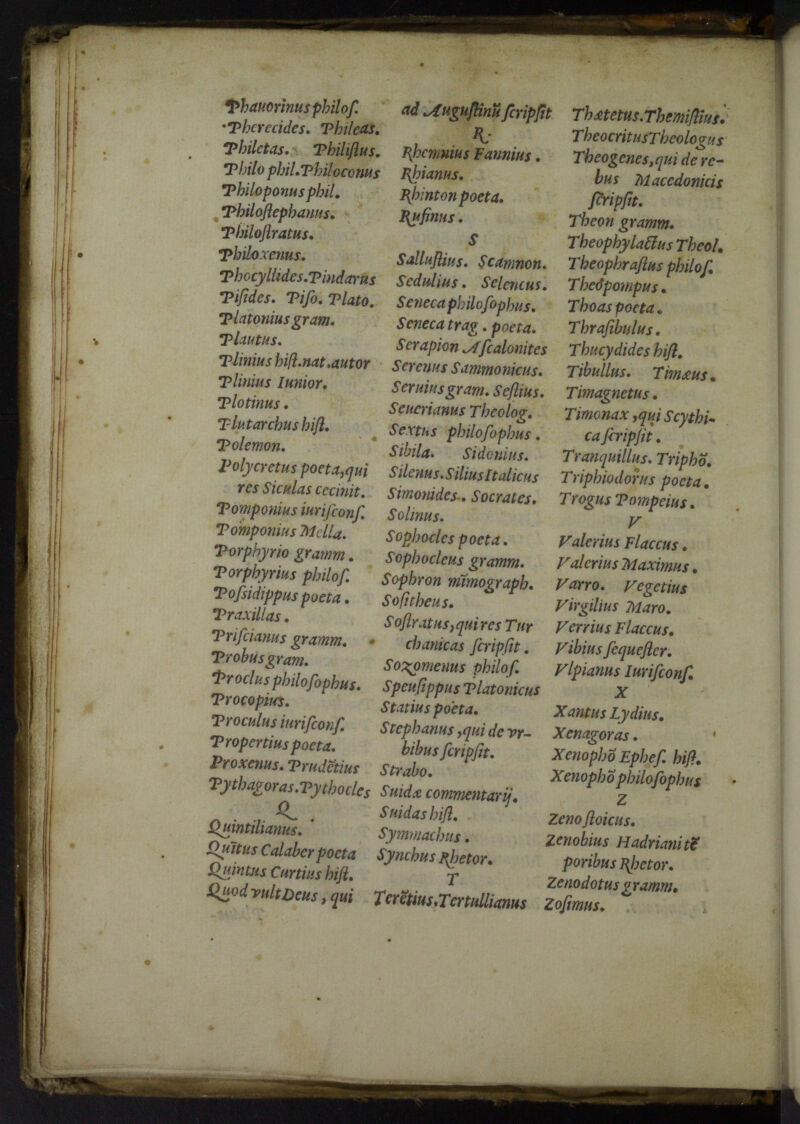 Phauorinus philoſ.
Pherecides. Phileas.
Philetas. Philiſtus.
Philo phil. Philoconus
Philoponus phil.
Philoſtephanus.
Philoſtratus.
Philoxenus.
Phocyllides. Pindarus
Piſides. Piſo. Plato.
Platonius gram.
Plautus.
Plinius hiſt. nat. autor
Plinius Iunior.
Plotinus.
Plutarchus hiſt.
Polemon.
Polycretus poeta, qui
res Siculas cecinit.
Pomponius iuriſconſ.
Pomponius Mella.
Porphyrio gramm.
Porphyrius philoſ.
Poſsidippus poeta.
Praxillas.
Priſcianus gramm.
Probus gram.
Proclus philoſophus.
Procopius.
Proculus iuriſconſ.
Propertius poeta.
Proxenus. Prudētius
Pythagoras. Pythocles
Q
Quintilianus.
Quītus Calaber poeta
Quintus Curtius hiſt.
Quod vult Deus, qui
ad Auguſtinū ſcripſit
R
Rhemnius Fannius.
Rhianus.
Rhinton poeta.
Rufinus.
S
Salluſtius. Scamnon.
Sedulius. Seleucus.
Seneca philoſophus.
Seneca trag. poeta.
Serapion Aſcalonites
Serenus Sammonicus.
Seruius gram. Seſtius.
Seuerianus Theolog.
Sextus philoſophus.
Sibila. Sidonius.
Silenus. Silius Italicus
Simonides. Socrates.
Solinus.
Sophocles poeta.
Sophocleus gramm.
Sophron mimograph.
Soſitheus.
Soſtratus, qui res Tur
chanicas ſcripſit.
Sozomenus philoſ.
Speuſippus Platonicus
Statius poeta.
Stephanus, qui de vr-
bibus ſcripſit.
Strabo.
Suidæ commentarij.
Suidas hiſt.
Symmachus.
Synchus Rhetor.
T
Terētius. Tertullianus
Thætetus. Themiſtius.
Theocritus Theologus
Theogenes, qui de re-
bus Macedonicis
ſcripſit.
Theon gramm.
Theophylactus Theol.
Theophraſtus philoſ.
Theōpompus.
Thoas poeta.
Thraſibulus.
Thucydides hiſt.
Tibullus. Timæus.
Timagnetus.
Timonax, qui Scythi-
ca ſcripſit.
Tranquillus. Triphō.
Triphiodorus poeta.
Trogus Pompeius.
V
Valerius Flaccus.
Valerius Maximus.
Varro. Vegetius
Virgilius Maro.
Verrius Flaccus.
Vibius ſequeſter.
Vlpianus Iuriſconſ.
X
Xantus Lydius.
Xenagoras.
Xenophō Epheſ. hiſt.
Xenophō philoſophus
Z
Zeno ſtoicus.
Zenobius Hadriani tē
poribus Rhetor.
Zenodotus gramm.
Zoſimus.